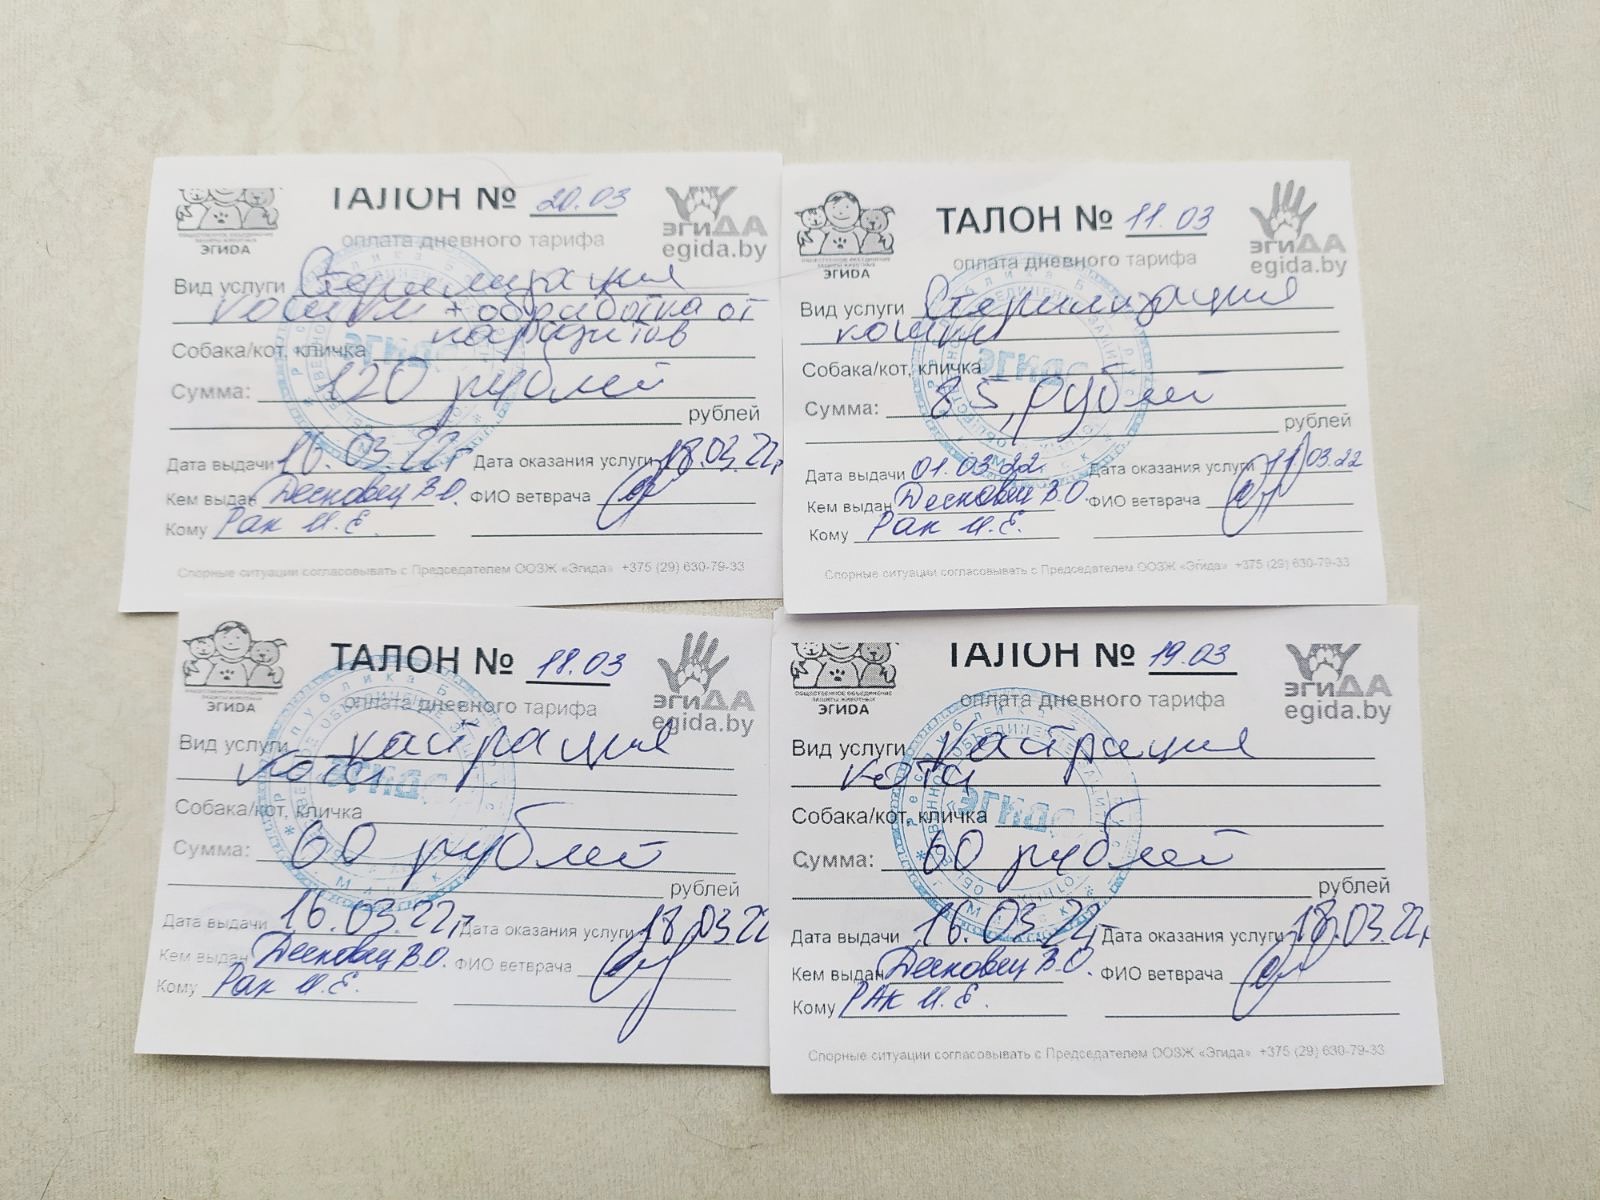 ТАЛОН № 20.03
оплата дневного тарифа
ОБЩЕСТВЕННОЕ ОБЪЕДИНЕНИЕ
ЗАЩИТЫ ЖИВОТНЫХ
ЭГИДА
эгиДА
egida.by
Вид услуги Стерилизация
кошки + обработка от
паразитов
Собака/кот, кличка
Сумма: 120 рублей
рублей
Дата выдачи 16.03.22г Дата оказания услуги 18.03.22г
Кем выдан Десковец В.О. ФИО ветврача
Кому Рак И.Е.
Спорные ситуации согласовывать с Председателем ООЗЖ «Эгида» +375 (29) 630-79-33
ТАЛОН № 11.03
оплата дневного тарифа
ОБЩЕСТВЕННОЕ ОБЪЕДИНЕНИЕ
ЗАЩИТЫ ЖИВОТНЫХ
ЭГИДА
эгиДА
egida.by
Вид услуги Стерилизация
кошки
Собака/кот, кличка
Сумма: 85, рублей
рублей
Дата выдачи 01.03.22. Дата оказания услуги 11.03.22
Кем выдан Десковец В.О. ФИО ветврача
Кому Рак И.Е.
Спорные ситуации согласовывать с Председателем ООЗЖ «Эгида» +375 (29) 630-79-33
ТАЛОН № 18.03
оплата дневного тарифа
ОБЩЕСТВЕННОЕ ОБЪЕДИНЕНИЕ
ЗАЩИТЫ ЖИВОТНЫХ
ЭГИДА
эгиДА
egida.by
Вид услуги кастрация
кота
Собака/кот, кличка
Сумма: 60 рублей
рублей
Дата выдачи 16.03.22г Дата оказания услуги 18.03.22
Кем выдан Десковец В.О. ФИО ветврача
Кому Рак И.Е.
ТАЛОН № 19.03
оплата дневного тарифа
ОБЩЕСТВЕННОЕ ОБЪЕДИНЕНИЕ
ЗАЩИТЫ ЖИВОТНЫХ
ЭГИДА
эгиДА
egida.by
Вид услуги кастрация
кота
Собака/кот, кличка
Сумма: 60 рублей
рублей
Дата выдачи 16.03.22г Дата оказания услуги 18.03.22г
Кем выдан Десковец В.О. ФИО ветврача
Кому РАК И.Е.
Спорные ситуации согласовывать с Председателем ООЗЖ «Эгида» +375 (29) 630-79-33